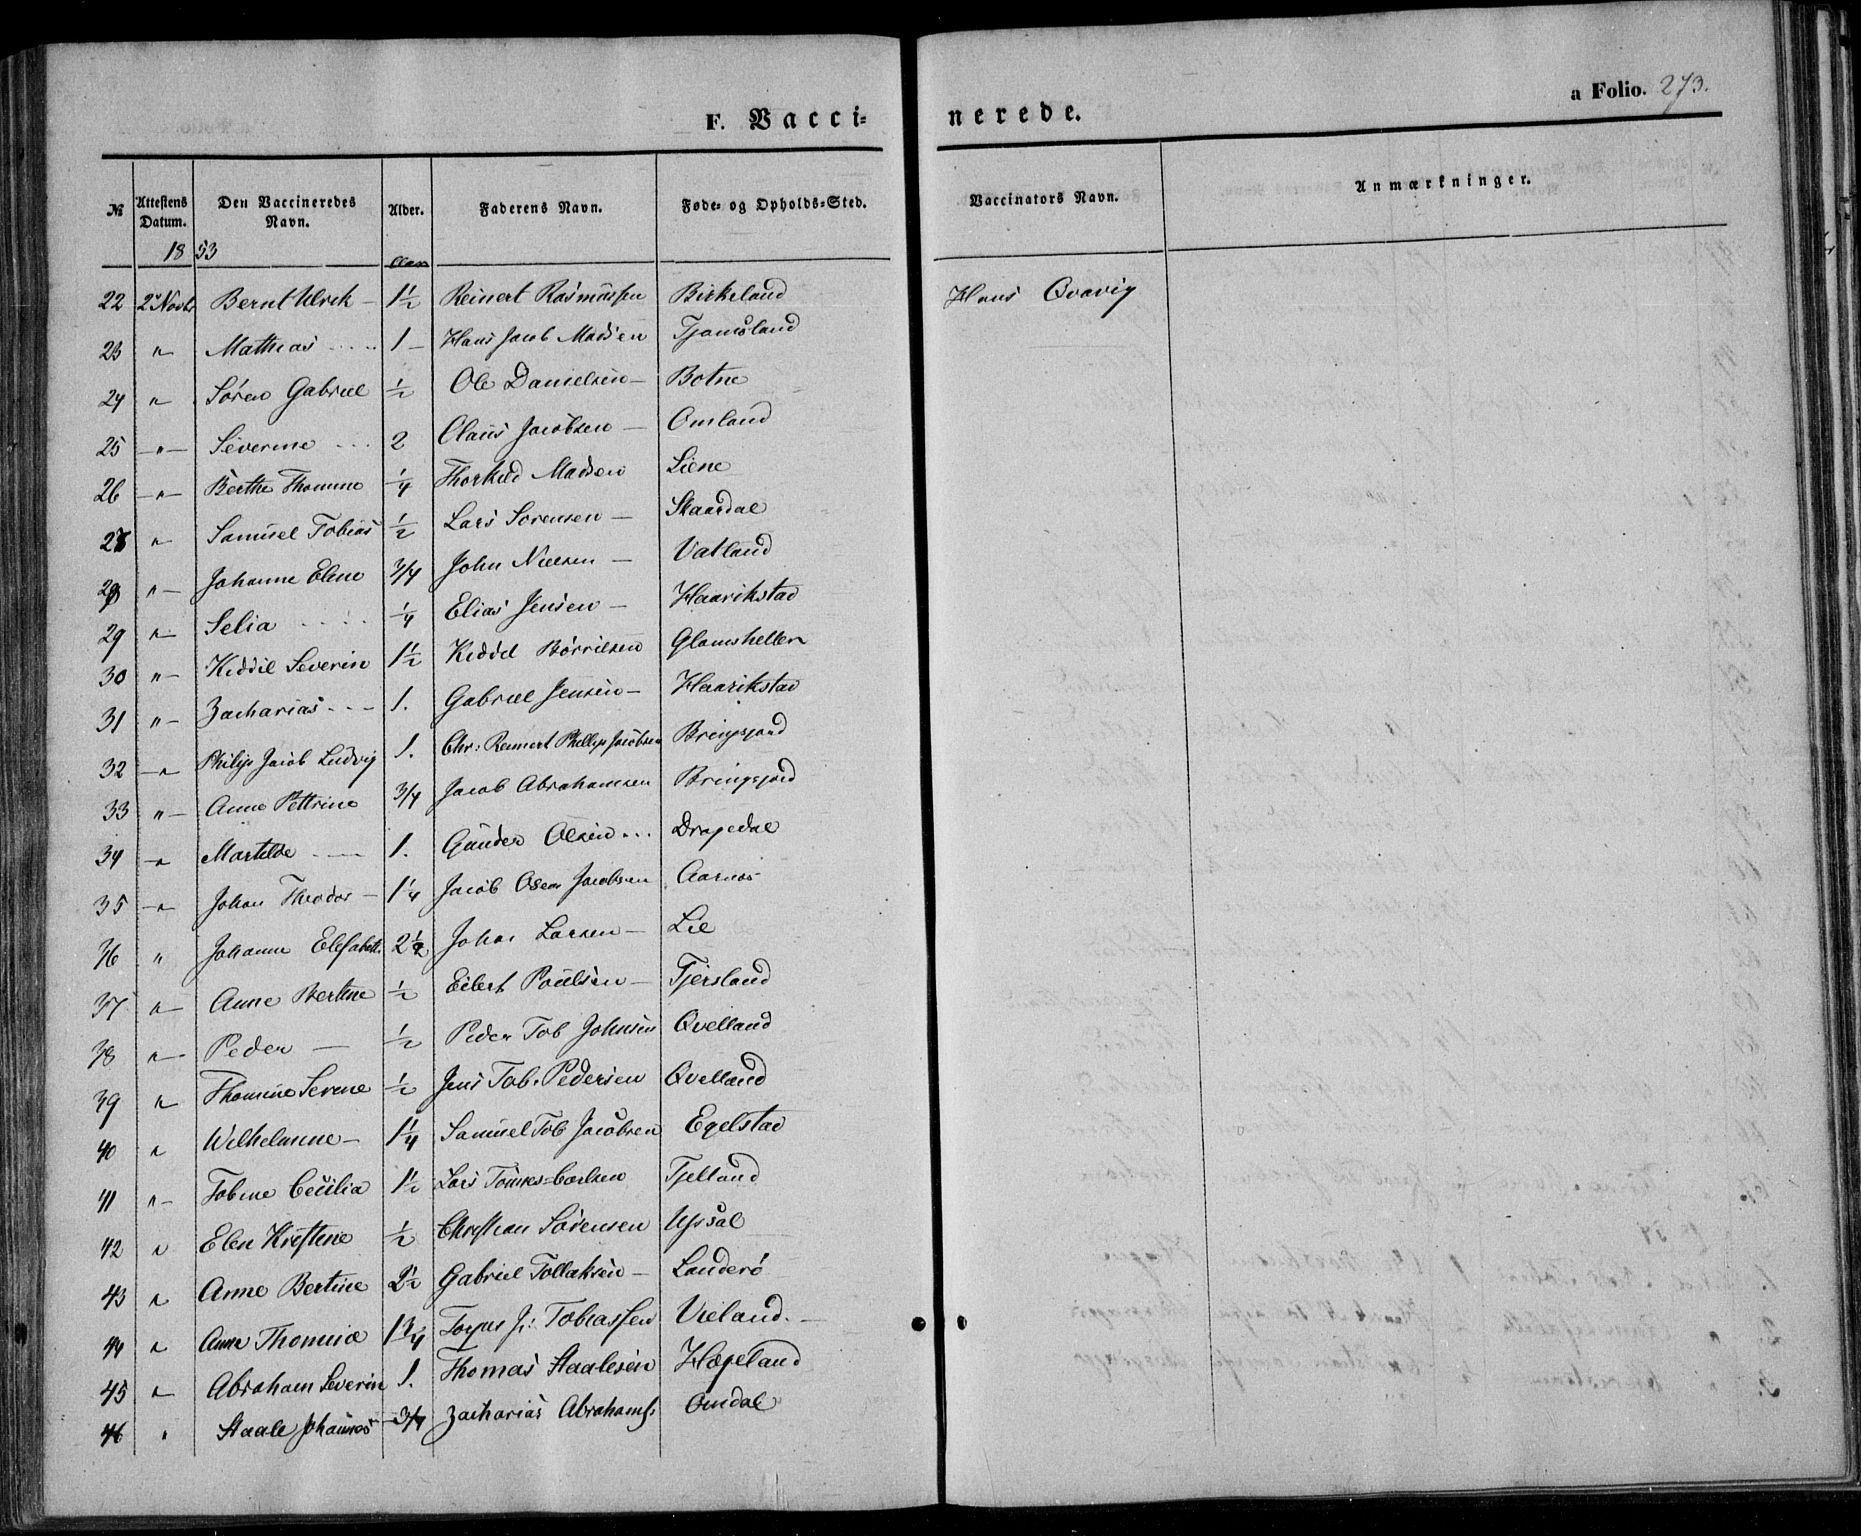 a Folio. 273.
F. Vaccinerede.
№ Attestens Datum. Den Vaccineredes Navn. Alder. Faderens Navn. Føde- og Opholds-Sted. Vaccinators Navn. Anmærkninger.
1853 Aar
22 2 Novbr Bernt Ulrik - 1½ Reinert Rasmussen Birkeland Hans Qvavig
23 " Mathias .... 1 - Hans Jacob Madsen Tjomsland
24 " Søren Gabriel ½ Ole Danielsen - Botne
25 -"- Severine ... 2 Claus Jacobsen - Omland
26 -"- Berthe Thomine ¼ Thorkild Madsen Liene
27 " Samuel Tobias ½ Lars Sorensen - Skaardal
28 "- Johanne Elene 3/4 John Nielsen - Vatland
29 "- Selia .... ¼ Elias Jensen - Haarikstad
30 "- Kiddil Severin 1½ Kiddel Børrilsen Glomshellen
31 "- Zacharias ... 1. Gabriel Jensen - Haarikstad
32 -" Philip Jacob Ludvig 1. Chr: Reinert Phillip Jacobsen Bringsjord
33 "- Anne Pettrine 3/4 Jacob Abrahamsen Bringsjord
34 -" Martilde ... 1. Gunder Olsen ... Dragedal
35 -" Johan Theodor - 1¼ Jacob Osen Jacobsen Aarnes
36 " Johanne Elisabeth. 2½ Johan Larsen - Lie
37 "- Anne Bertine ½ Eilert Poulsen - Tjersland
38 "- Peder - ½ Peder Tob Johnsen Qvelland
39 " Thomine Serene ½ Jens Tob. Pedersen Qvelland
40 " Wilhelmine - 1¼ Samuel Tob Jacobsen Egelstad
41 "- Tobine Cecilia 1½ Lars Tønnes-Carlsen Tjelland
42 " Elen Kristine ½ Christian Sørensen Upsal
43 " Anne Bertine 2½ Gabriel Tollaksen - Landerø
44 " Anne Thomine 1¾ Torjus J: Tobiassen Vieland. -
45 " Abraham Severin 1. Thomas Staalesen Hægeland
46 " Staale Johannes 3/4 Zacharias Abrahams. Omdal